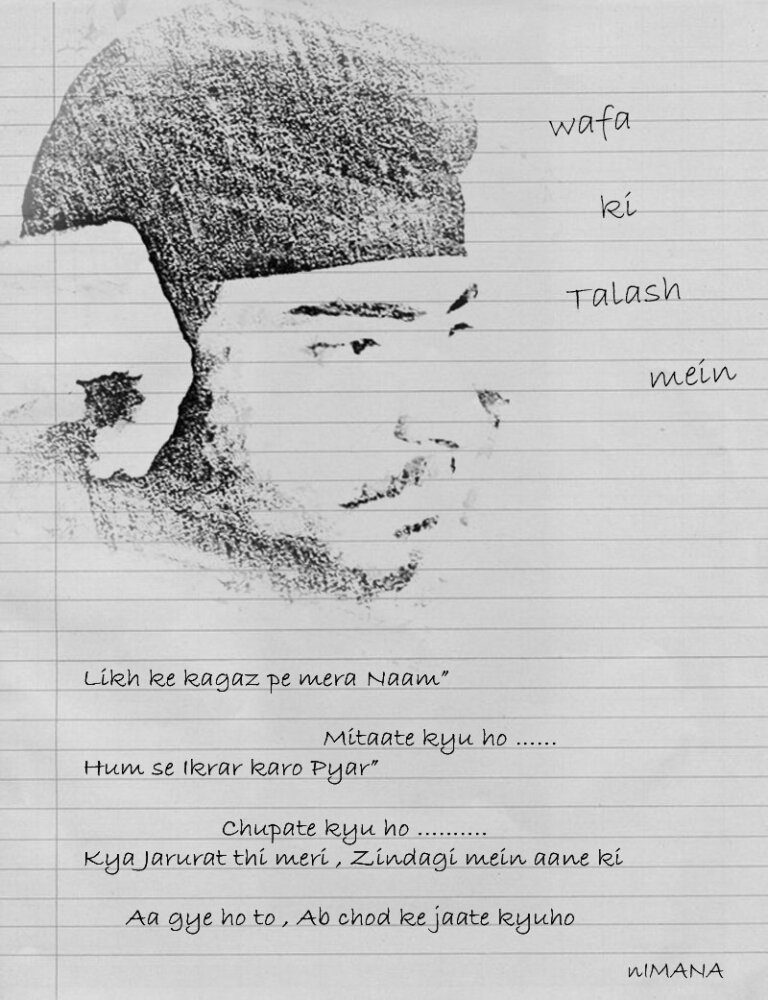 wafa
ki
Talash
mein
Likh ke kagaz pe mera Naam”
Mitaate kyu ho ......
Hum se Ikrar karo Pyar”
Chupate kyu ho ..........
Kya Jarurat thi meri , Zindagi mein aane ki
Aa gye ho to , Ab chod ke jaate kyuho
nIMANA